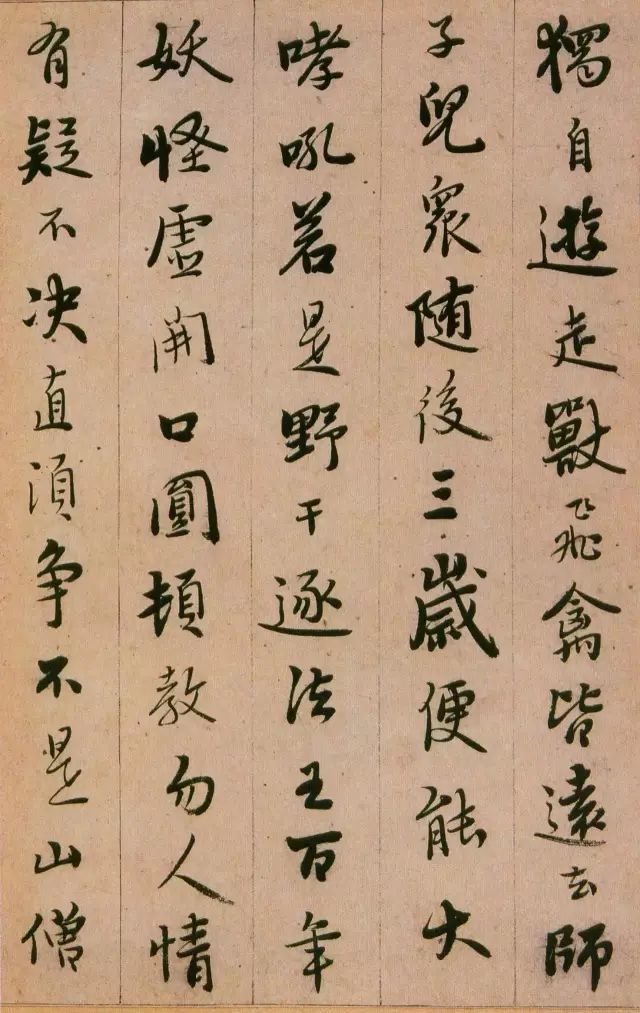 獨自遊走獸飛禽皆遠去師
子兒眾随後三歲便能大
哮吼若是野干逐法王百年
妖怪虛開口圓頓教勿人情
有疑不决直須争不是山僧